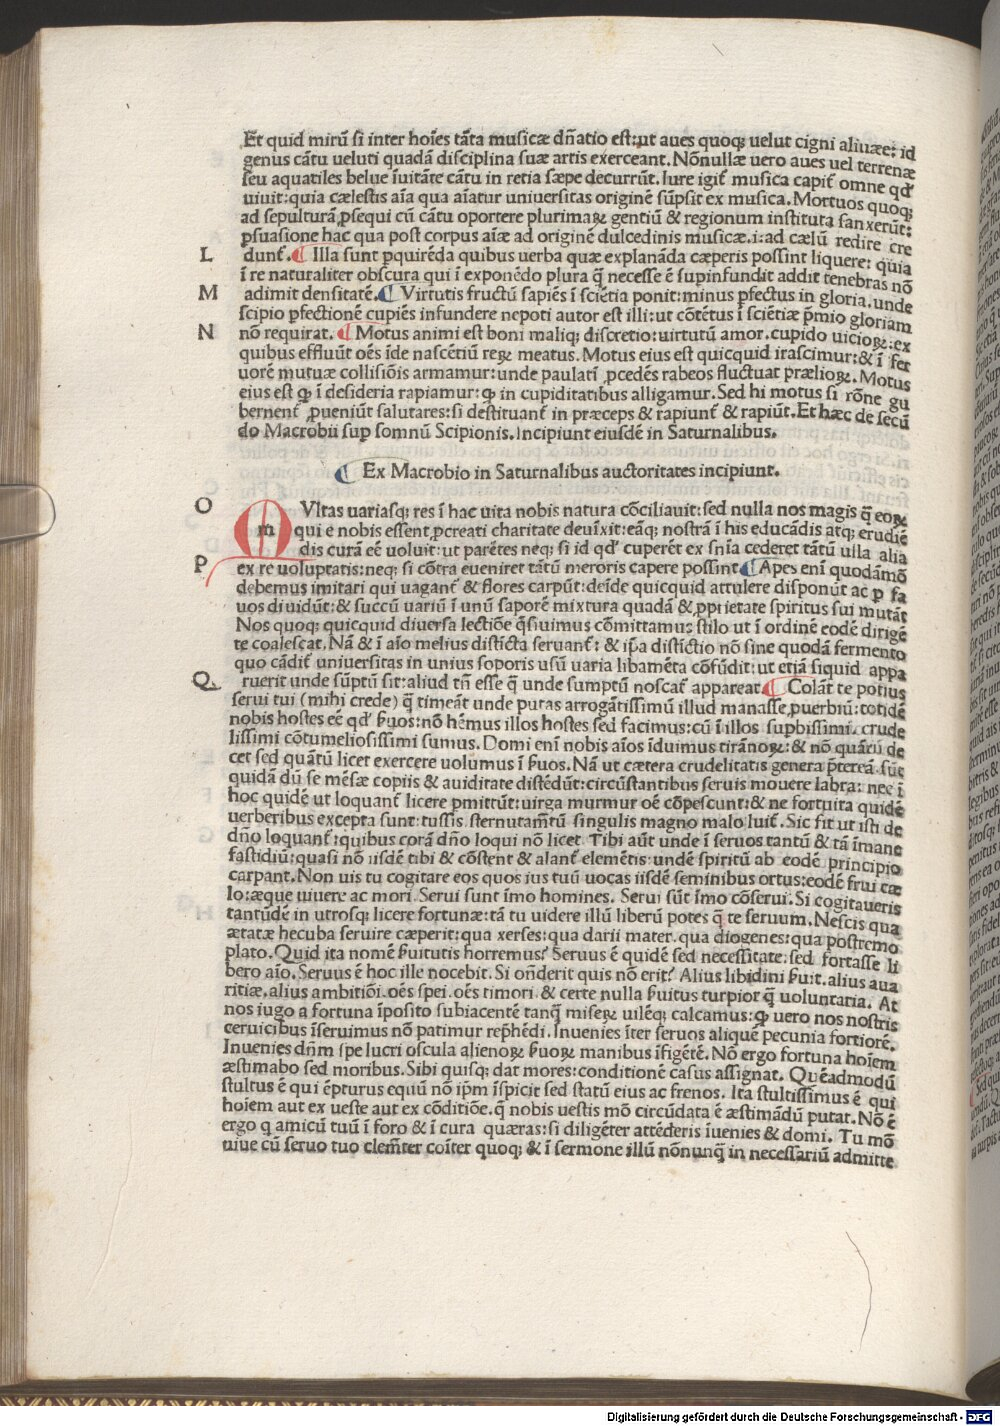 Et quid mirū si inter hoīes tāta musicæ dñatio est: ut aues quoq; uelut cigni aliuæe: id
genus cātu ueluti quadā disciplina suæ artis exerceant. Nōnullæ uero aues uel terrenæ
seu aquatiles belue īuitāte cātu in retia sæpe decurrūt. Iure igit̄ musica capit̄ omne qď
uiuit: quia cælestis aīa qua aīatur uniuersitas originē sūpsit ex musica. Mortuos quoq;
ad sepulturā ꝓsequi cū cātu oportere plurimaꝝ gentiū & regionum instituta sanxerūt:
ꝑsuasione hac qua post corpus aīæ ad originē dulcedinis musicæ .i: ad cælū redire cre
L dunt̄. ¶ Illa sunt ꝑquirēda quibus uerba quæ explanāda cæperis possint liquere: quia
ī re naturaliter obscura qui ī exponēdo plura q̄ necesse ē supinfundit addit tenebras nō
M adimit densitatē. ¶ Virtutis fructū sapiēs ī sciētia ponit: minus ꝑfectus in gloria. unde
scipio ꝑfectionē cupiēs infundere nepoti autor est illi: ut cōtētus ī sciētiæ p̄mio gloriam
N nō requirat. ¶ Motus animi est boni maliq; discretio: uirtutū amor. cupido uicioꝝ: ex
quibus effluūt oēs īde nascētiū reꝝ meatus. Motus eius est quicquid irascimur: & ī fer
uorē mutuæ collisiōis armamur: unde paulatī ꝓcedēs rabeos fluctuat prælioꝝ. Motus
eius est ꝙ ī desideria rapiamur: ꝙ in cupiditatibus alligamur. Sed hi motus si rōne gu
bernent̄ ꝓueniūt salutares: si destituant̄ in præceps & rapiunt̄ & rapiūt. Et hæc de secū
do Macrobii sup somnū Scipionis. Incipiunt eiusdē in Saturnalibus.
¶ Ex Macrobio in Saturnalibus auctoritates incipiunt.
O m Vltas uariasq; res ī hac uita nobis natura cōciliauit: sed nulla nos magis q̄ eoꝝ
qui e nobis essent ꝓcreati charitate deuīxit: eāq; nostrā ī his educādis atq; erudiē
dis curā eē uoluit: ut parētes neq; si id qď cuperēt ex snīa cederet tātū ulla alia
P ex re uoluptatis: neq; si cōtra eueniret tātū meroris capere possint ¶ Apes enī quodāmō
debemus imitari qui uagant̄ & flores carpūt: deīde quicquid attulere disponūt ac ꝑ fa
uos diuidūt: & succū uariū ī unū saporē mixtura quadā & ꝓprietate spiritus sui mutāt
Nos quoq; quicquid diuersa lectiōe q̄siuimus cōmittamus stilo ut ī ordinē eodē dirigē
te coalescat. Nā & ī aīo melius distīcta seruant̄: & ip̄a distīctio nō sine quodā fermento
quo cādit̄ uniuersitas in unius soporis usū uaria libamēta cōfūdit: ut etiā siquid appa
Q ruerit unde sūptū sit: aliud tn̄ esse q̄ unde sumptū noscat̄ appareat ¶ Colāt te potius
serui tui (mihi crede) q̄ timeāt unde putas arrogātissimū illud manasse ꝓuerbiū: totidē
nobis hostes eē qď ẜuos: nō hēmus illos hostes sed facimus: cū ī illos supbissimi. crude
lissimi cōtumeliosissimi sumus. Domi enī nobis aīos īduimus tirānoꝝ: & nō quātū de
cet sed quātū licet exercere uolumus ī ẜuos. Nā ut cætera crudelitatis genera p̄tereā sūt
quidā dū se mēsæ copiis & auiditate distēdūt: circūstantibus seruis mouere labra: nec ī
hoc quidē ut loquant̄ licere ꝑmittūt: uirga murmur oē cōpescunt: & ne fortuita quidē
uerberibus excepta sunt: tussis sternutamētū singulis magno malo luit̄. Sic fit ut isti de
dño loquant̄: quibus corā dño loqui nō licet Tibi aūt unde ī seruos tantū & tā īmane
fastidiū: quasi nō iisdē tibi & cōstent & alant̄ elemētis: undē spiritū ab eodē principio
carpant. Non uis tu cogitare eos quos ius tuū uocas iisdē seminibus ortus: eodē frui cæ
lo: æque uiuere ac mori. Serui sunt īmo homines. Serui sūt īmo cōserui. Si cogitaueris
tantūdē in utrosq; licere fortunæ: tā tu uidere illū liberū potes q̄ te seruum. Nescis qua
ætatæ hecuba seruire cæperit: qua xerses: qua darii mater. qua diogenes: qua postremo
plato. Quid ita nomē ẜuitutis horremus? Seruus ē quidē sed necessitate: sed fortasse li
bero aīo. Seruus ē hoc ille nocebit. Si oñderit quis nō erit? Alius libidini ẜuit. alius aua
ritiæ. alius ambitiōi. oēs spei. oēs timori. & certe nulla ẜuitus turpior q̄ uoluntaria. At
nos iugo a fortuna īposito subiacentē tanq̄ miseꝝ uilēq; calcamus: ꝙ uero nos nostris
ceruicibus īseruimus nō patimur rep̄hēdi. Inuenies īter seruos aliquē pecunia fortiorē.
Inuenies dñm spe lucri oscula alienoꝝ ẜuoꝝ manibus īfigētē. Nō ergo fortuna hoīem
æstimabo sed moribus. Sibi quisq; dat mores: conditionē casus assignat. Quēadmodū
stultus ē qui ēpturus equū nō ip̄m īspicit sed statū eius ac frenos. Ita stultissimus ē qui
hoīem aut ex ueste aut ex cōditiōe. q̄ nobis uestis mō circūdata ē æstimādū putat. Nō ē
ergo q amicū tuū ī foro & ī cura quæras: si diligēter attēderis īuenies & domi. Tu mō
uiue cū seruo tuo clemēter coīter quoq; & ī sermone illū nōnunq̄ in necessariū admitte
Digitalisierung gefördert durch die Deutsche Forschungsgemeinschaft - DFG